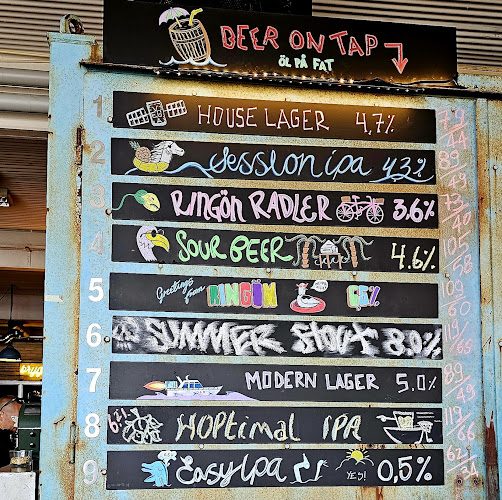 BEER ON TAP
ÖL PÅ FAT
1 HOUSE LAGER 4,7% 79/44
2 Session ipa 4,3% 89/49
3 RINGÖN RADLER 3.6% 73/40
4 SOUR BEER 4.6% 105/58
5 Greetings from RINGÖN 6,6% 109/60
6 SUMMER STOUT 8.0% 119/66
7 MODERN LAGER 5.0% 89/49
8 HOPTimal IPA 119/66
9 Easy Ipa 0,5% 62/34